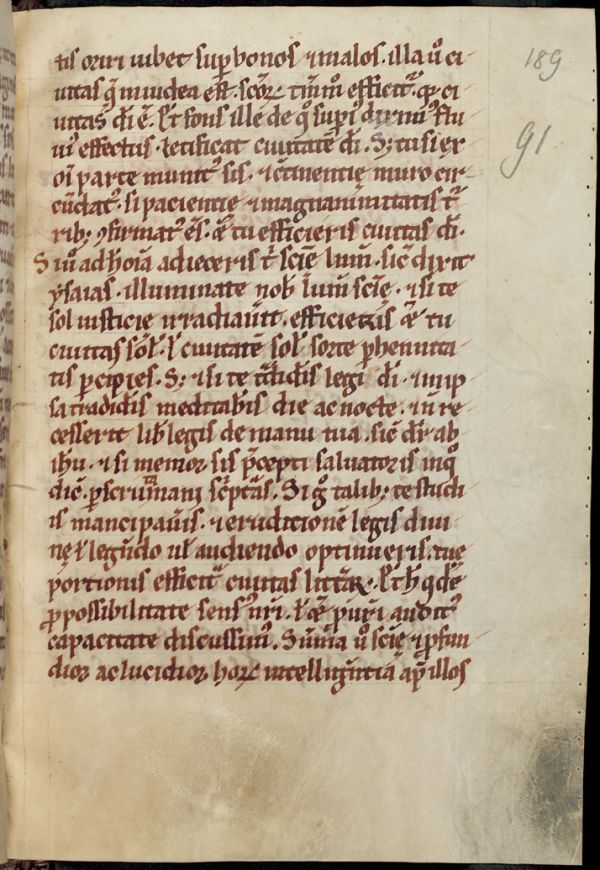 tis oriri iubet sup bonos ⁊ malos. illa ů ci-
uitas q̄ in iudea est. scōꝝ tm̄m efficit᷑. q̨ ci-
uitas di ē. Et fons ille de qͦ supiͦ diximꝰ flu-
uiꝰ effectus. letificat ciuitatē di. S; tu si ex
oi parte munitꝰ sis. ⁊ ↄtinentie muro cir-
cūdatꝰ. si pacientie ⁊ magnanimitatis t᷑-
rib; ꝯfirmatꝰ es. &̄ tu efficieris ciuitas di.
Si ů ad h̄ oīa adieceris ⁊ sciē lum̄. sic̄ dixit
ysaias. illuminate nob̄ lum̄ sciē. ⁊ si te
sol iusticie irradiaůit. efficieris &̄ tu
ciuitas sol̄. l̄ ciuitatē sol̄ sorte phennita-
tis pcipies. S; ⁊ si te t̄didis legi di. ⁊ in ip-
sa tradidis meditab̄is die ac nocte. ⁊ n̄ re-
cesserit lib̄ legis de manu tua. sic̄ dr̄ ab
ihu. ⁊ si memor sis p̄cepti saluatoris in qͦ
dic̄. pscrutamini sc̄ptas. Si gͦ talib; te studi-
is mancipaůis. ⁊ eruditionē legis diui-
ne l̄ legn̄do ul̄ audiendo optinueris. tue
portionis efficit᷑ ciuitas litt̄aꝝ. Et h̄ qdē
ꝓ possibilitate sensꝰ nr̄i. l̄ &̄ puri auditꝰ
capacitate discussimꝰ. Sūma ů sciē ⁊ pfun-
dior ac lucidior hoꝝ intellign̄tia ap illos
189
91